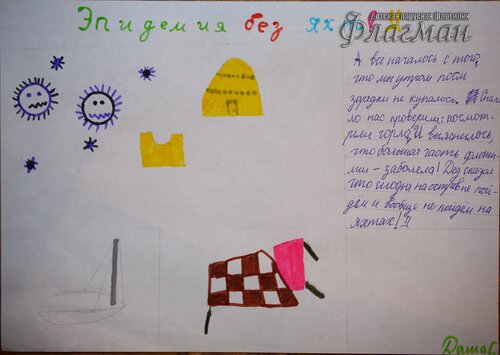 Эпидемия без яхт
Детская парусная Флотилия
Флагман
А все началось с того,
что мы утром после
зарядки не купались. Снача
ло нас проверили: посмот-
рели горло. И выяснилось,
что большая часть флоти-
лии - заболела! Дед сказал
что сегодня на остров не пой-
дём и вообще не пойдём на
яхтах!
Даша С.